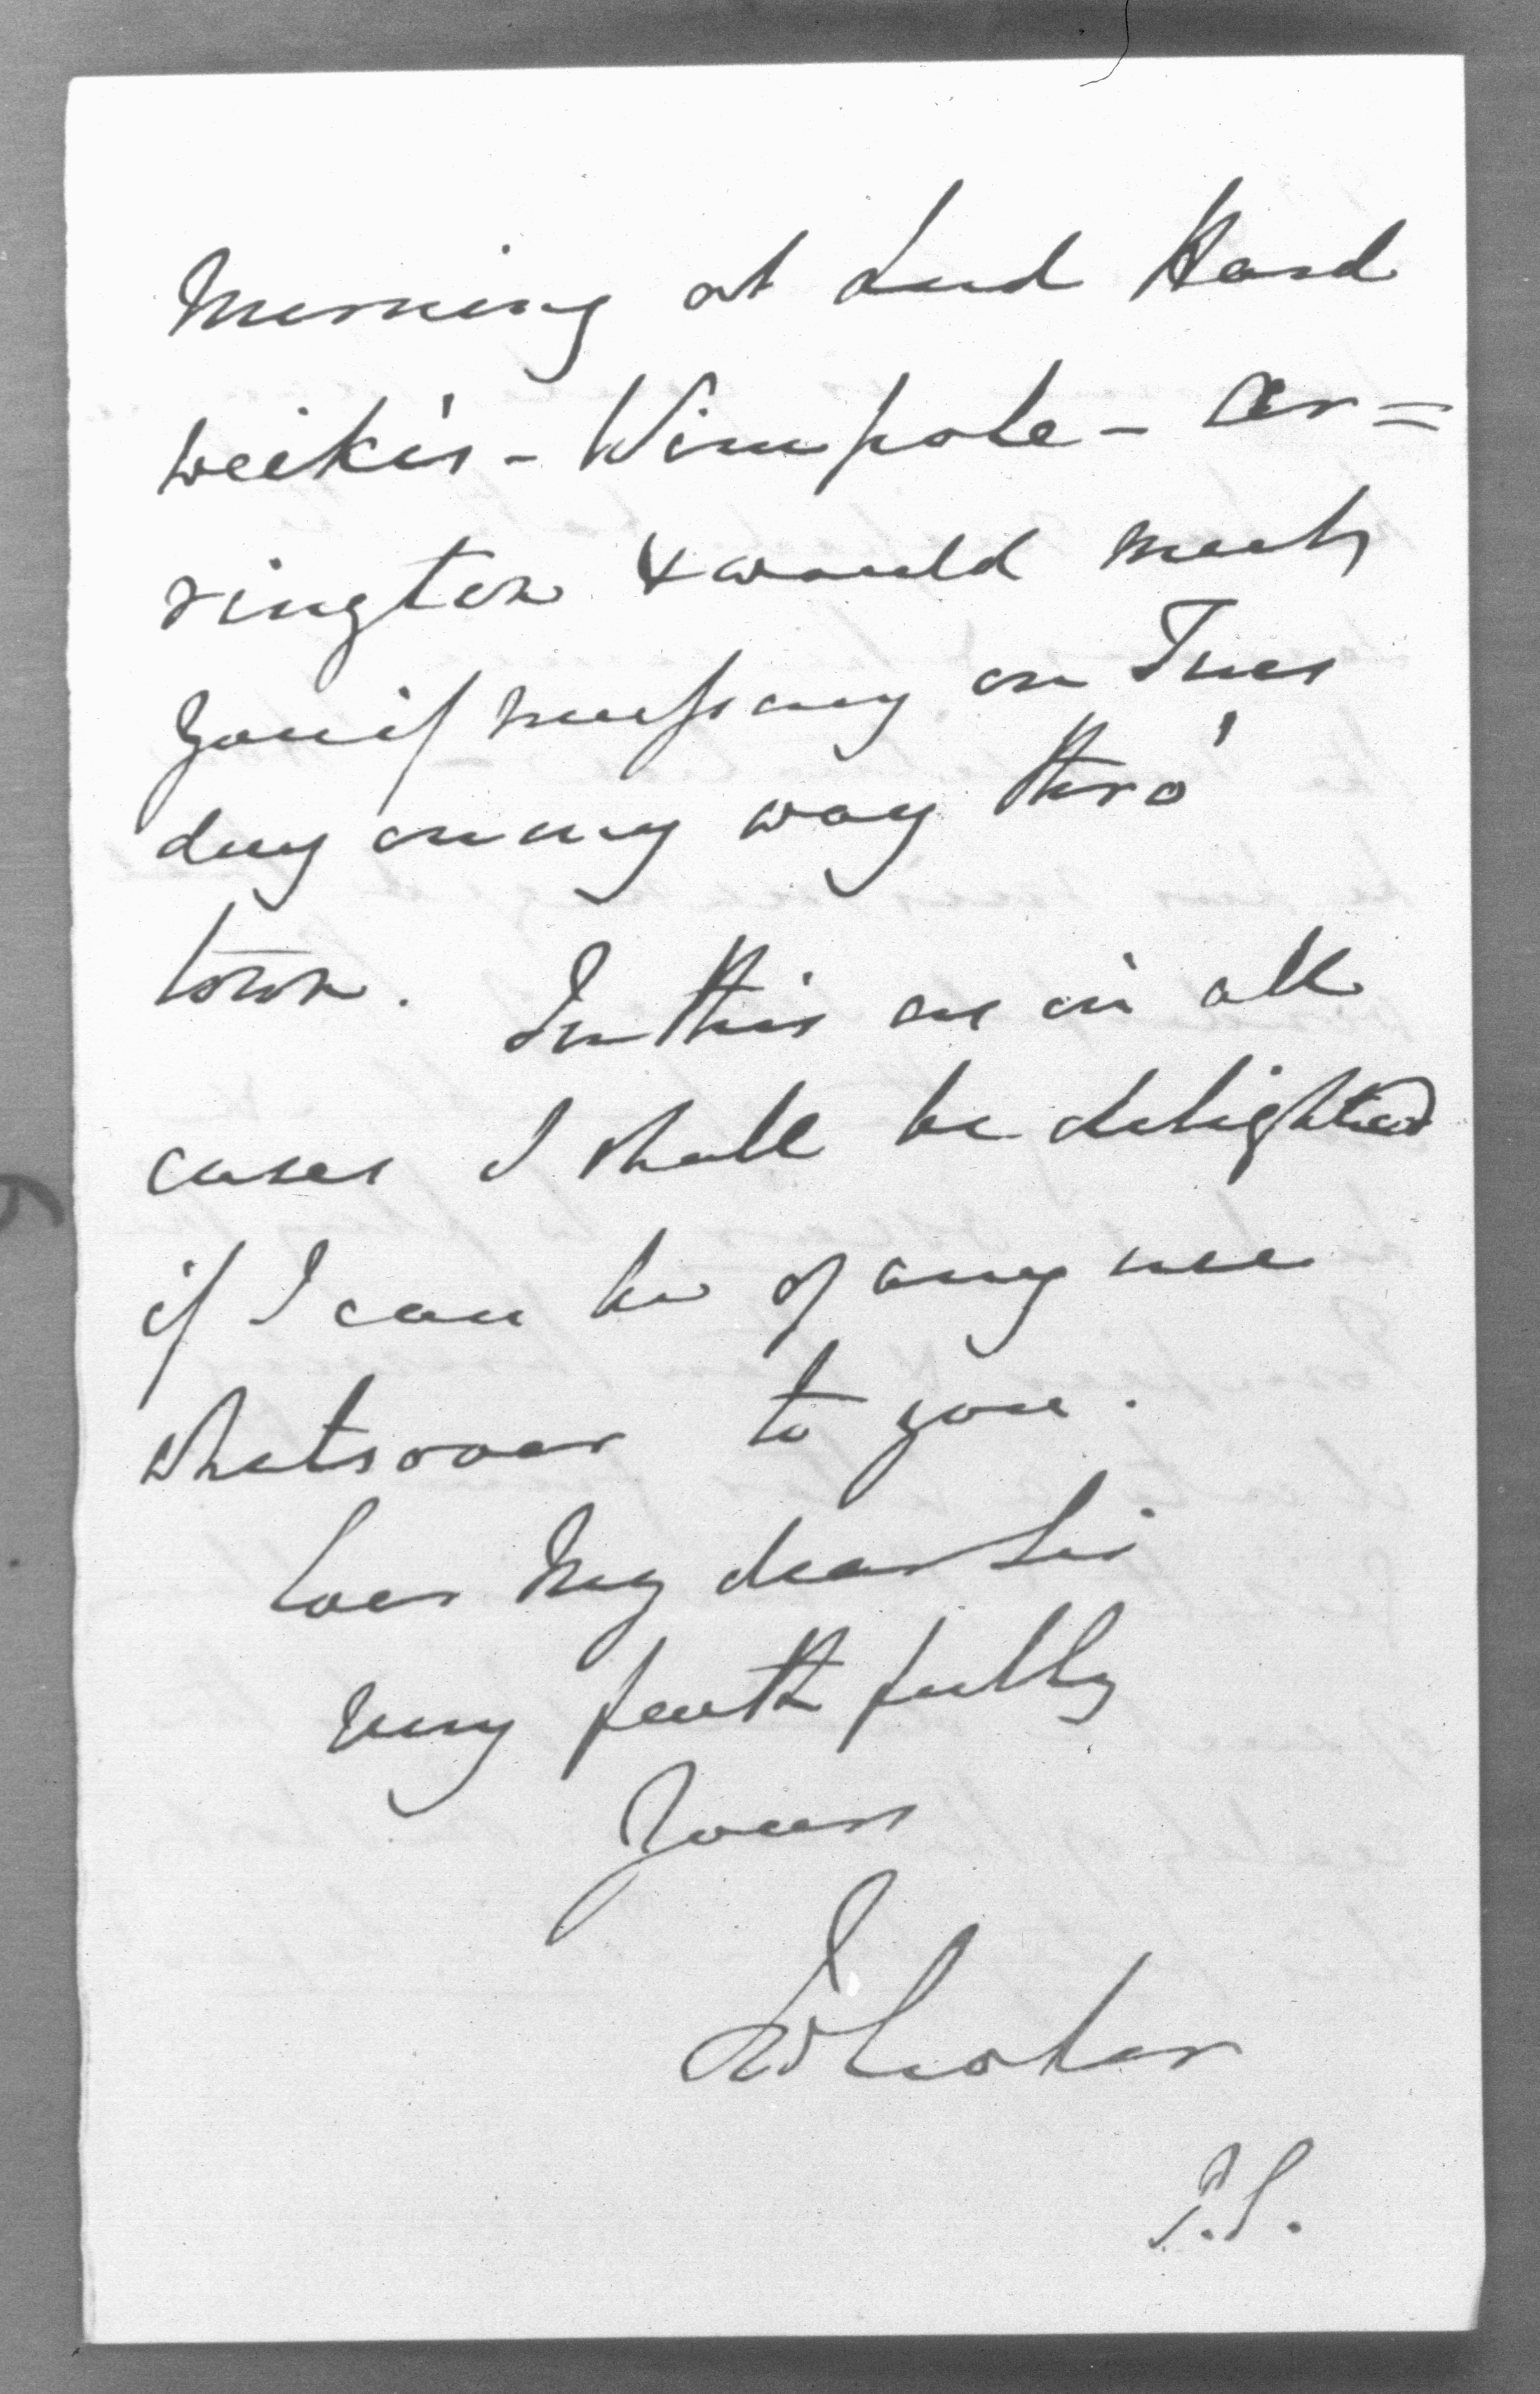 Morning at Lord Hard
wick's - Wimpole - Ar=
rington & would meet
you if necessary on Tues
day on my way thro'
town. In this as in all
cases I shall be delighted
if I can be of any use
whatsoever to you.
Ever My dear Sir
very faithfully
Yours
P.S.